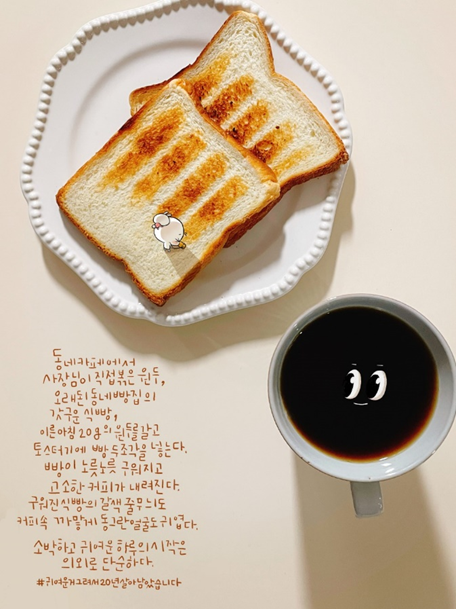 동네카페에서
사장님이 직접볶은 원두,
오래된 동네빵집의
갓구운 식빵,
이른아침 20g의 원두를갈고
토스터기에 빵 두조각을 넣는다.
빵이 노릇노릇 구워지고
고소한 커피가 내려진다.
구워진식빵의 갈색 줄무늬도
커피속 까맣게 동그란얼굴도 귀엽다.
소박하고 귀여운 하루의시작은
의외로 단순하다.
#귀여운거그려서20년살아남았습니다